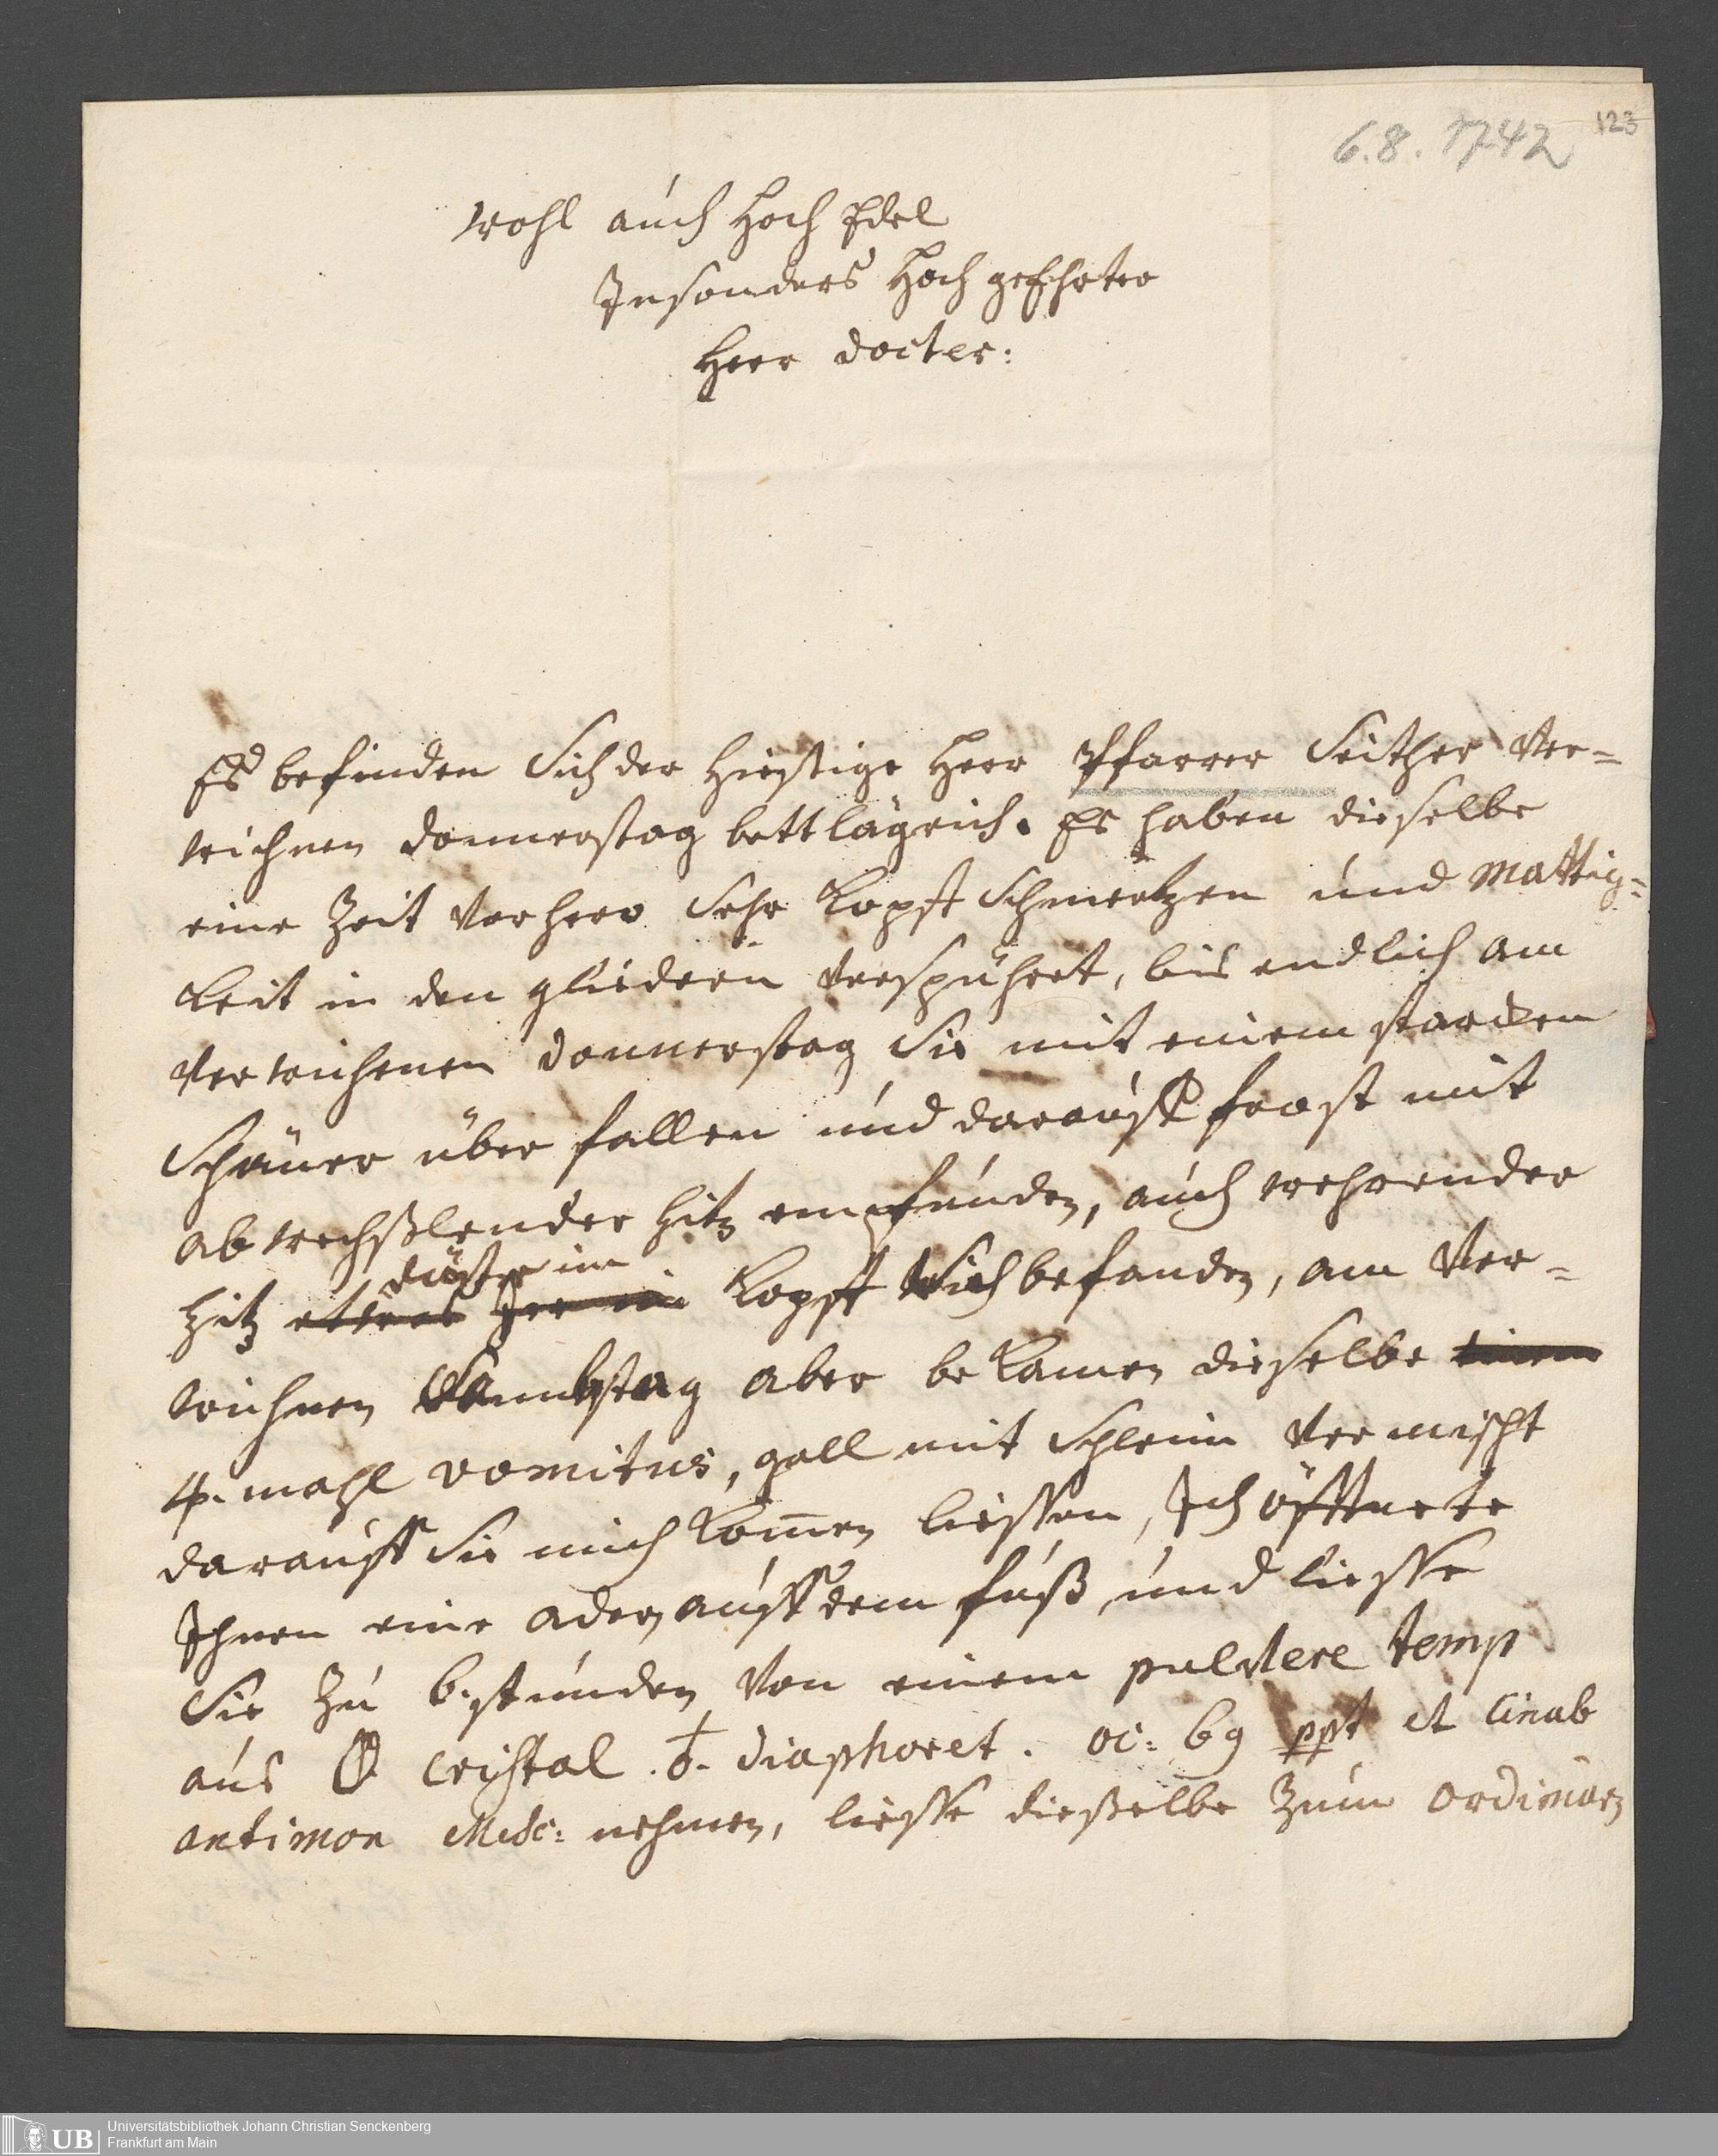 123
6.8.1742
Wohl auch Hoch Edel
Insonders Hoch geEhrter
Herr docter:
Es befinden Sich der hiesige Herr Pfarrer Seither Ver=
wichnen donnerstag bettlägrich. Es haben dieselbe
eine Zeit vorhero Sehr Kopft Schmertzen und Mattig=
keit in den gliedern verspühret, bis endlich am
verwichenen donnerstag Sie mit einem starcken
Schauer über fallen und darauff frost mit
abwechßlender hitz empfunden, auch wehrender
düster im
hitz etwas Irr im Kopff Sich befanden, am Ver=
wichnen Sambstag aber bekamen dieselbe einem
4. mahl vomitus, gall mit Schleim vermischt
darauff Sie mich komen liessen, Ich öffnete
Ihnen eine ader auff dem fuß, und liesse
Sie zu 6. stunden von einem pulvere temp
aus cristal . ♁. diaphoret. oc: 69 ppt et Cinab
antimon Mdc: nehmen, liesse dieselbe zum ordinären
UB
Universitätsbibliothek Johann Christian Senckenberg
Frankfurt am Main